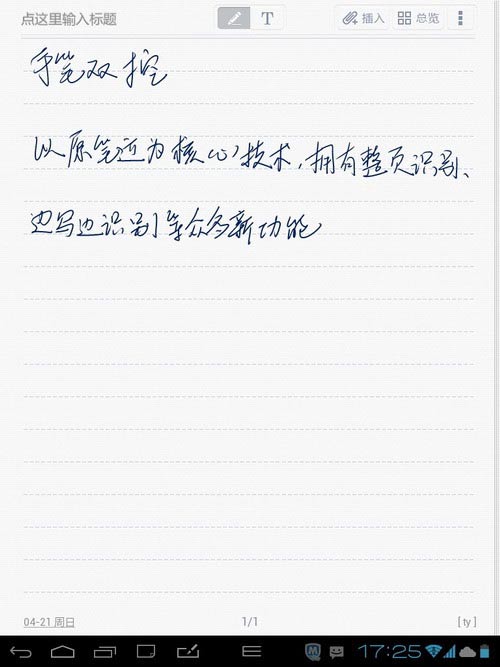 点这里输入标题 T 插入 总览
手笔双控
以原笔迹为核心技术，拥有整页识别、
边写边识别等众多新功能
04-21 周日 1/1 [ty]
17:25